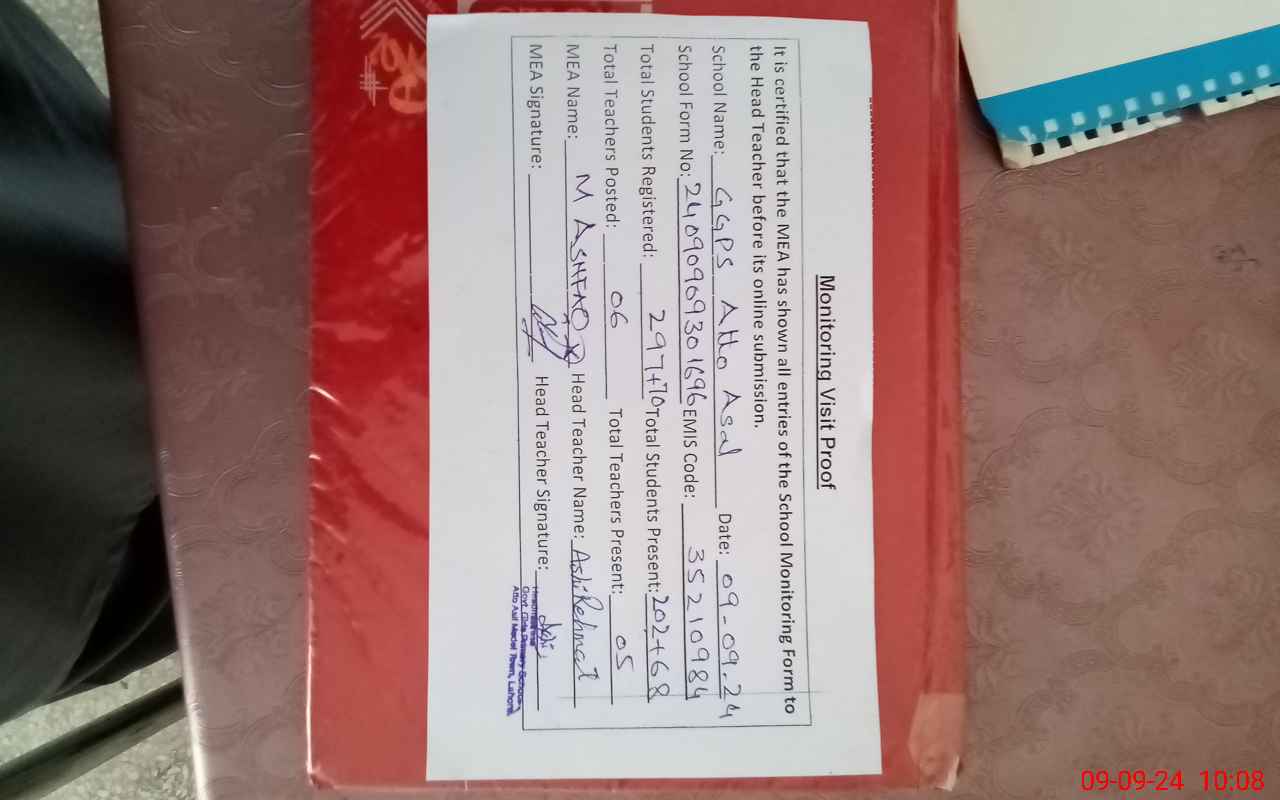 Monitoring Visit Proof
It is certified that the MEA has shown all entries of the School Monitoring Form to
the Head Teacher before its online submission.
School Name: GGPS Atto Asal Date: 09-09-24
School Form No: 24090909301696 EMIS Code: 35210984
Total Students Registered: 297+70 Total Students Present: 202+68
Total Teachers Posted: 06 Total Teachers Present: 05
MEA Name: M ASHFAQ Head Teacher Name: Ashi Rehmat
MEA Signature: Head Teacher Signature:
Headmistress
Govt. Girls Primary School
Atto Asil Model Town, Lahore.
09-09-24 10:08